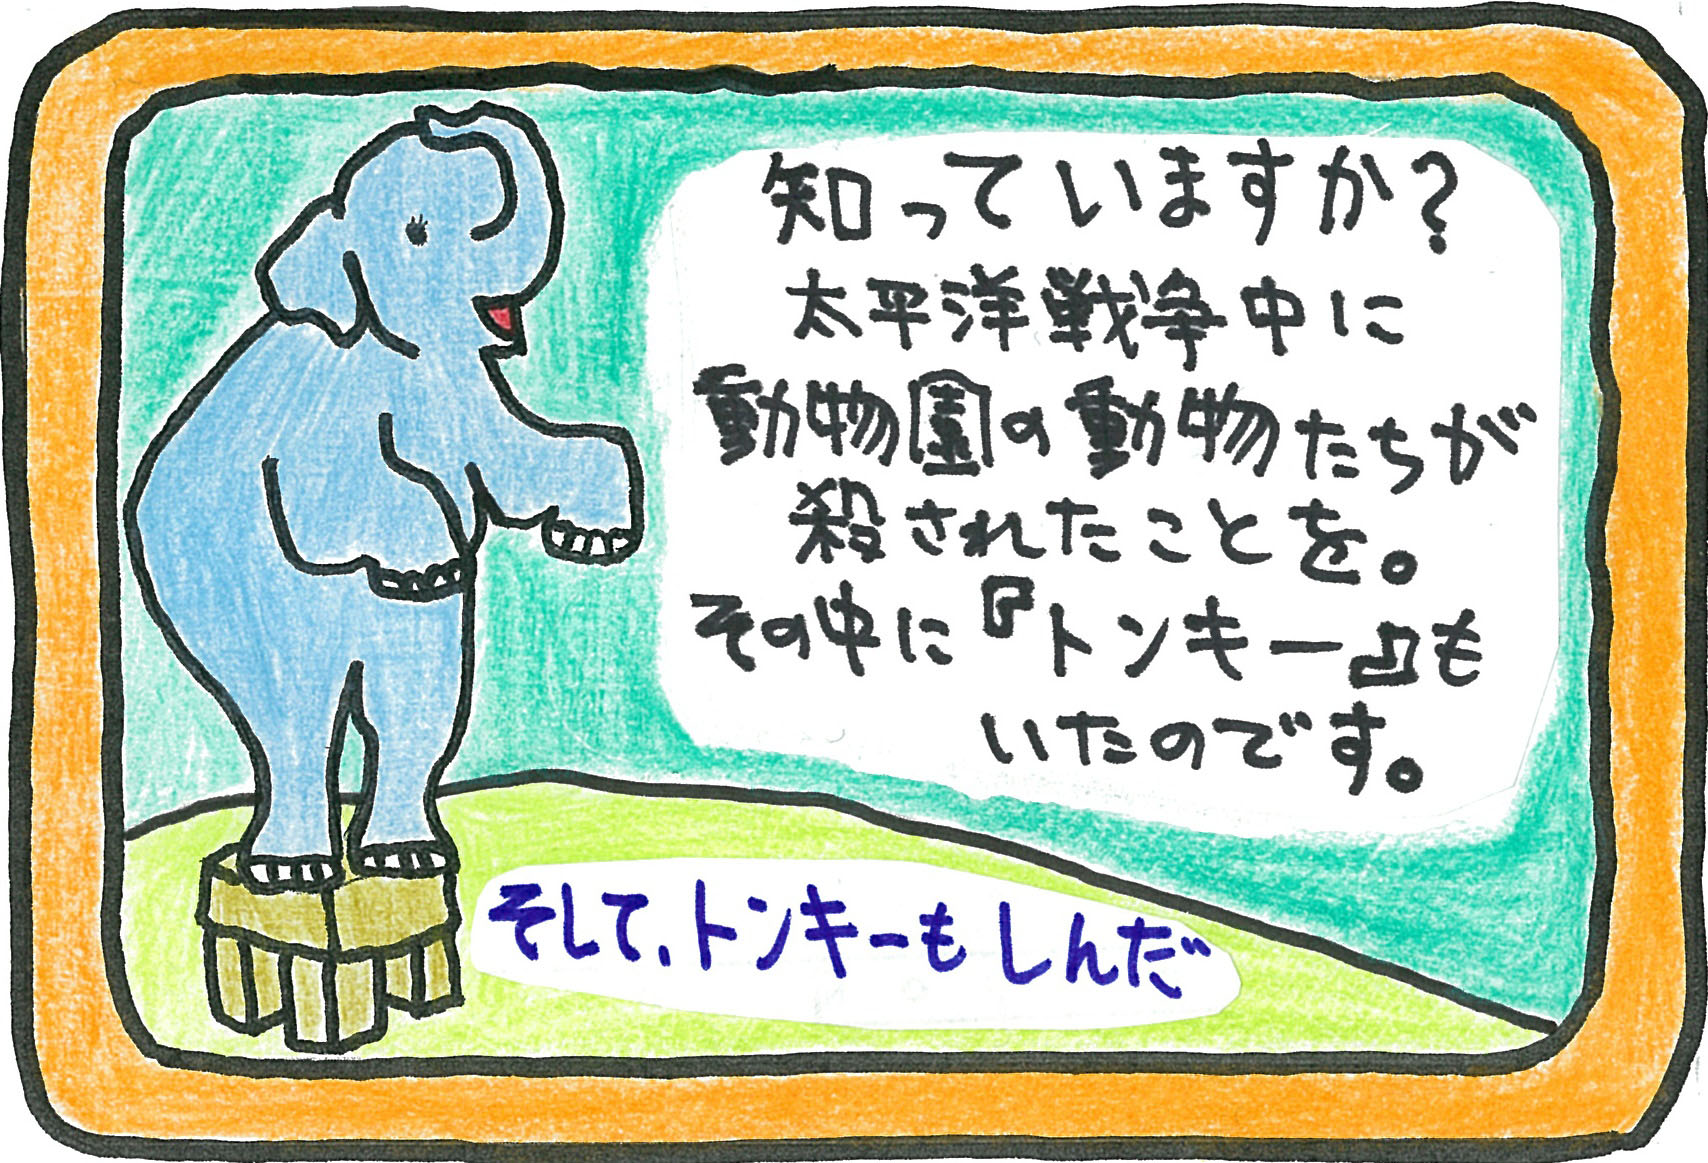 知っていますか?
太平洋戦争中に
動物園の動物たちが
殺されたことを。
その中に『トンキー』も
いたのです。
そして、トンキーもしんだ